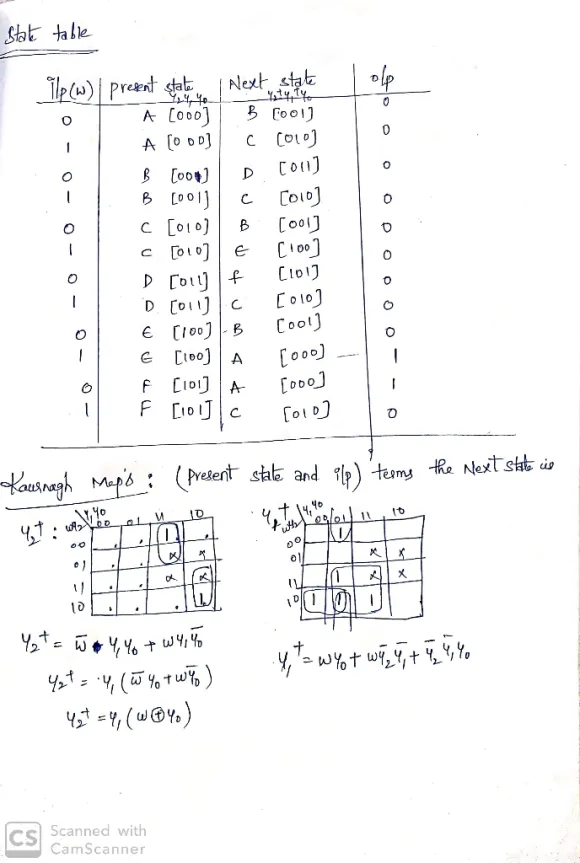 State table
i/p(w) present state Next state o/p
y₂y₁y₀ y₂⁺y₁⁺y₀
0 A [000] B [001] 0
1 A [000] C [010] 0
0 B [001] D [011] 0
1 B [001] C [010] 0
0 C [010] B [001] 0
1 C [010] E [100] 0
0 D [011] f [101] 0
1 D [011] C [010] 0
0 E [100] B [001] 0
1 E [100] A [000] 1
0 F [101] A [000] 1
1 F [101] C [010] 0
Kaurnagh Map's : (present state and i/p) terms the Next state is
y₂⁺ : wy₂ y₁y₀ 00 01 11 10
00 . . 1 .
01 . . x x
11 . . x x
10 . . . 1
y₁⁺ wy₂ y₁y₀ 00 01 11 10
00 1
01 x x
11 1 x x
10 1 1 1
y₂⁺ = w̅ y₁y₀ + wy₁y̅₀
y₂⁺ = y₁(w̅y₀+wy̅₀)
y₂⁺ = y₁(w⊕y₀)
y₁⁺ = wy₀ + wy̅₂y̅₁ + y̅₂y̅₁y₀
CS Scanned with
CamScanner